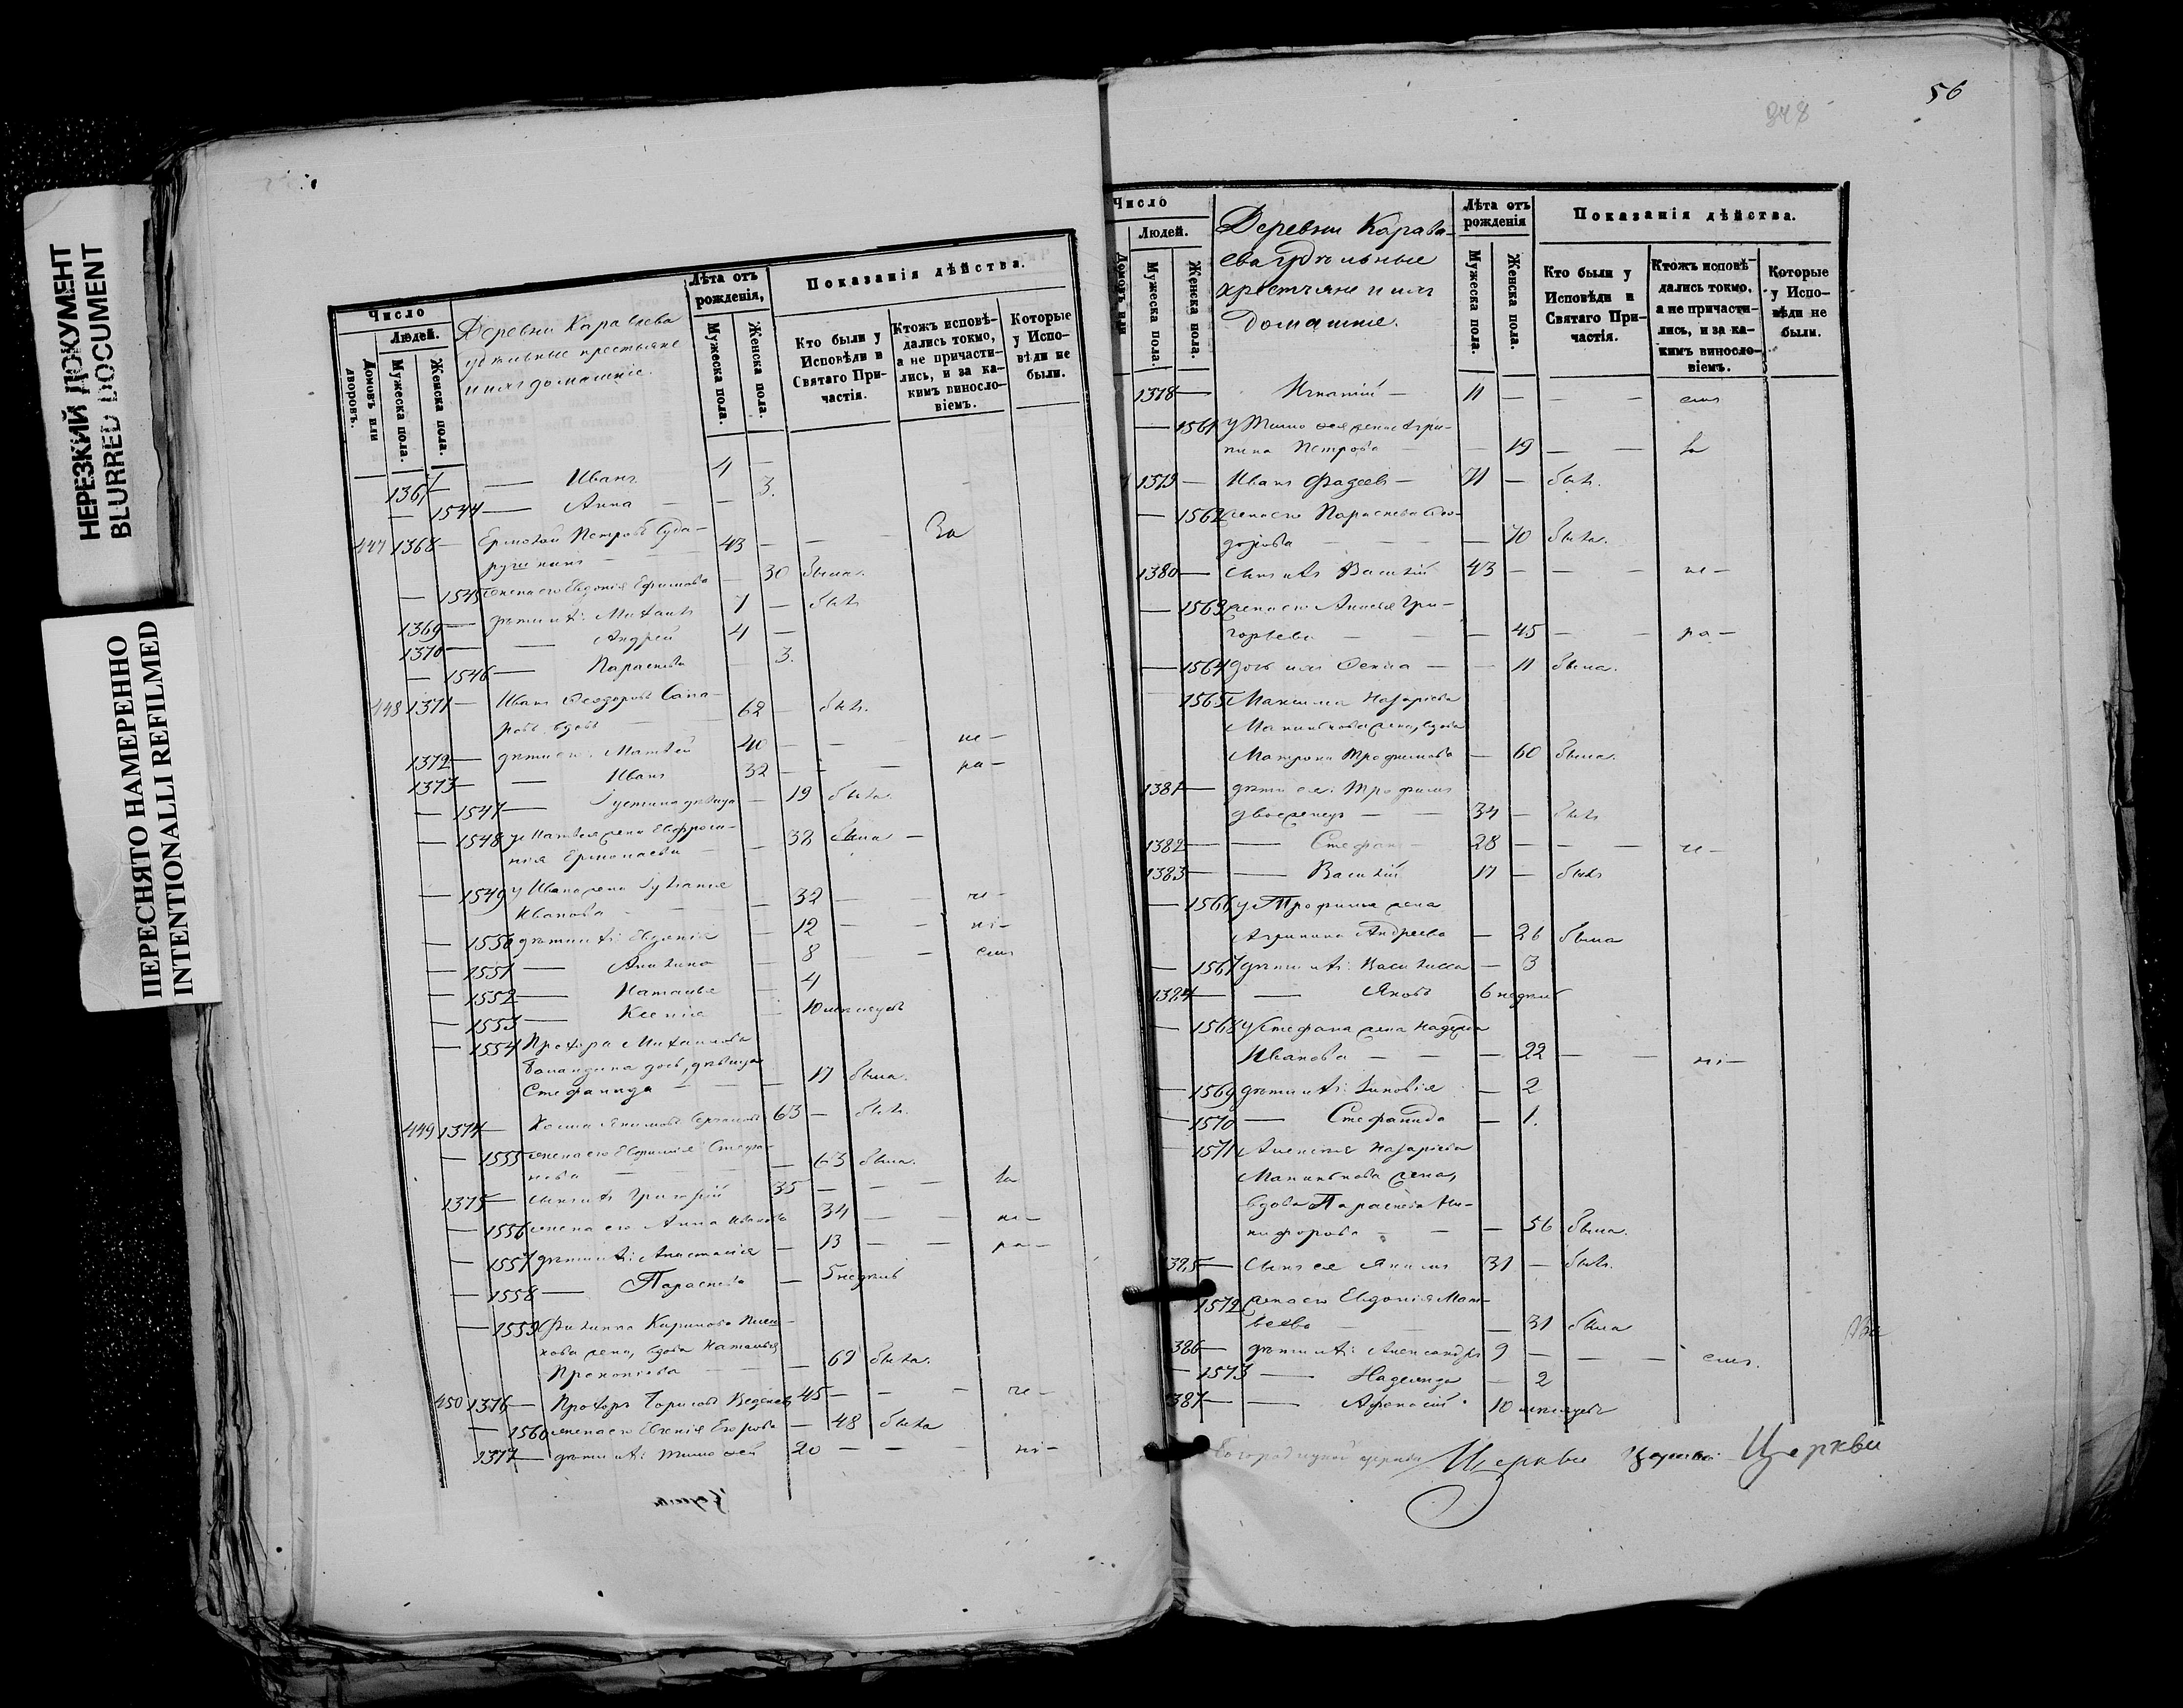 НЕРЕЗКИЙ ДОКУМЕНТ
BLURRED DOCUMENT
ПЕРЕСНЯТО НАМЕРЕННО
INTENTIONALLI REFILMED
Число
Людей.
Домовъ или дворовъ.
Мужеска пола.
Женска пола.
Деревни Караваева
удѣльные крестьяне
и ихъ домашніе.
Лѣта отъ рожденія,
Мужеска пола.
Женска пола.
Показанія дѣйства.
Кто были у Исповѣди и Святаго Причастія.
Ктожъ исповѣдались токмо, а не причастились, и за какимъ винословіемъ.
Которые у Исповѣди не были.
1367 — — Иванъ 4 —
— 1544 — Анна — — 3.
447 1368 — Ермолай Петровъ
43 — — — За
— 1545 жена его Евдокія Ефимова — 30 была.
1369 — дѣти ихъ: Михаилъ 7 — былъ
1370 — — Андрей 4 —
— 1546 — Параскева 3.
448 1371 — Иванъ Ѳеодоровъ
вдовъ — — 62 — былъ.
1372 — дѣти его: Матвей 40 — — — не —
1373 — — Иванъ 32 — — — ра —
— 1547 — Іустина дѣвица — 19 была.
— 1548 у Матвея жена Евфроси-
нія Ермолаева — — 32 была —
— 1549 у Ивана жена Іуліанія
Иванова — — — 32 — — не —
— 1550 дѣти ихъ: Евгенія — 12 — — ні —
— 1551 — Акилина — 8 — — емъ
— 1552 — Наталья — 4
— 1553 — Ксенія — 10 мѣсяцовъ
— 1554 Прохора Михаилова
дочь, дѣвица
Стефанида — — 17 была.
449 1374 — Косма Акимовъ 63 — былъ.
— 1555 жена его Евфимія Стефа-
нова — — 63 была.
1375 — сынъ ихъ Григорій 35 — — — за
— 1556 жена его Анна Иванова 34 — — не —
— 1557 дѣти ихъ: Анастасія — 13 — — ра —
— 1558 — Параскева — 5 недѣль
— 1559 Филиппа Карпова
жена, вдова Наталья
Прокопіева — — 69 была.
450 1376 — Прохоръ Борисовъ 45 — — — не —
— 1560 жена его Евгенія Егорова — 48 была
1377 — дѣти ихъ: Тимоѳей 20 — — — ні —
56
848
Число
Людей.
Домовъ или
Мужеска пола.
Женска пола.
Деревни Карава-
ева удѣльные
крестьяне и ихъ
домашніе.
Лѣта отъ рожденія
Мужеска пола.
Женска пола.
Показанія дѣйства.
Кто были у Исповѣди и Святаго Причастія.
Ктожъ исповѣдались токмо, а не причастились, и за какимъ винословіемъ.
Которые у Исповѣди не были.
1378 — Игнатій — 11 — — — емъ
— 1561 у Тимоѳея жена Агри-
пина Петрова — — 19 — — за
1379 — Иванъ Фадеевъ — 71 — былъ.
— 1562 жена его Параскева Ѳео-
дорова — — — 70 была.
1380 — сынъ ихъ Василій 43 — — — не —
— 1563 жена его Анисья Гри-
горьева — — — 45 — — ра —
— 1564 дочь ихъ Ѳекла — — 11 была.
1565 Максима Назарьева
жена, вдова
Матрона Трофимова — 60 была.
1381 — дѣти ея: Трофимъ
двоеженецъ — — 34 — былъ
1382 — — Стефанъ — 28 — — — не —
1383 — — Василій 17 — былъ
— 1566 у Трофима жена
Агрипина Андреева — 26 была
— 1567 дѣти ихъ: Василисса — 3
1384 — — Яковъ 6 недѣль
— 1568 у Стефана жена Надежда
Иванова — — — 22 — — ні —
— 1569 дѣти ихъ: Зиновія — 2
— 1570 — Стефанида — 1.
1571 Алексѣя Назарьева
жена,
вдова Параскева Ни-
кифорова — — — 56 была.
1385 — сынъ ея Акимъ 31 — былъ.
1572 жена его Евдокія Мат-
веева — — — 31 была
386 — дѣти ихъ: Александръ 9 — — — емъ.
— 1573 — Надежда — 2
387 — — Аѳанасій 10 мѣсяцевъ
Богородицкой церкви Церкви Церкви Церкви